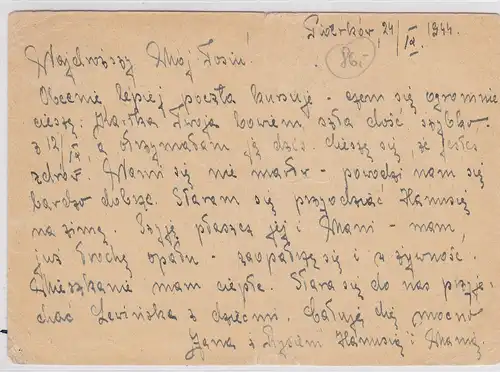 Piotrków, 24/IX. 1944.
86.-
Najdroższy Mój Tosiu!
Obecnie lepiej poczta kursuje - czem się ogromnie
cieszę. Kartka Twoja bowiem szła dość szybko
z 12/IX, a otrzymałam ją dziś. Cieszę się, że jesteś
zdrów. Nami się nie martw - powodzi nam się
bardzo dobrze. Staram się przyodziać Hanusię
na zimę. Szyję płaszcz jej i Mani - mam
już trochę opału - zaopatruję się i w żywność.
Mieszkanie mam ciepłe. Stara się do nas przyje-
chać Lewińska z dziećmi. Całuję Cię mocno
Jana z Rysiem Hanusią i Manią.